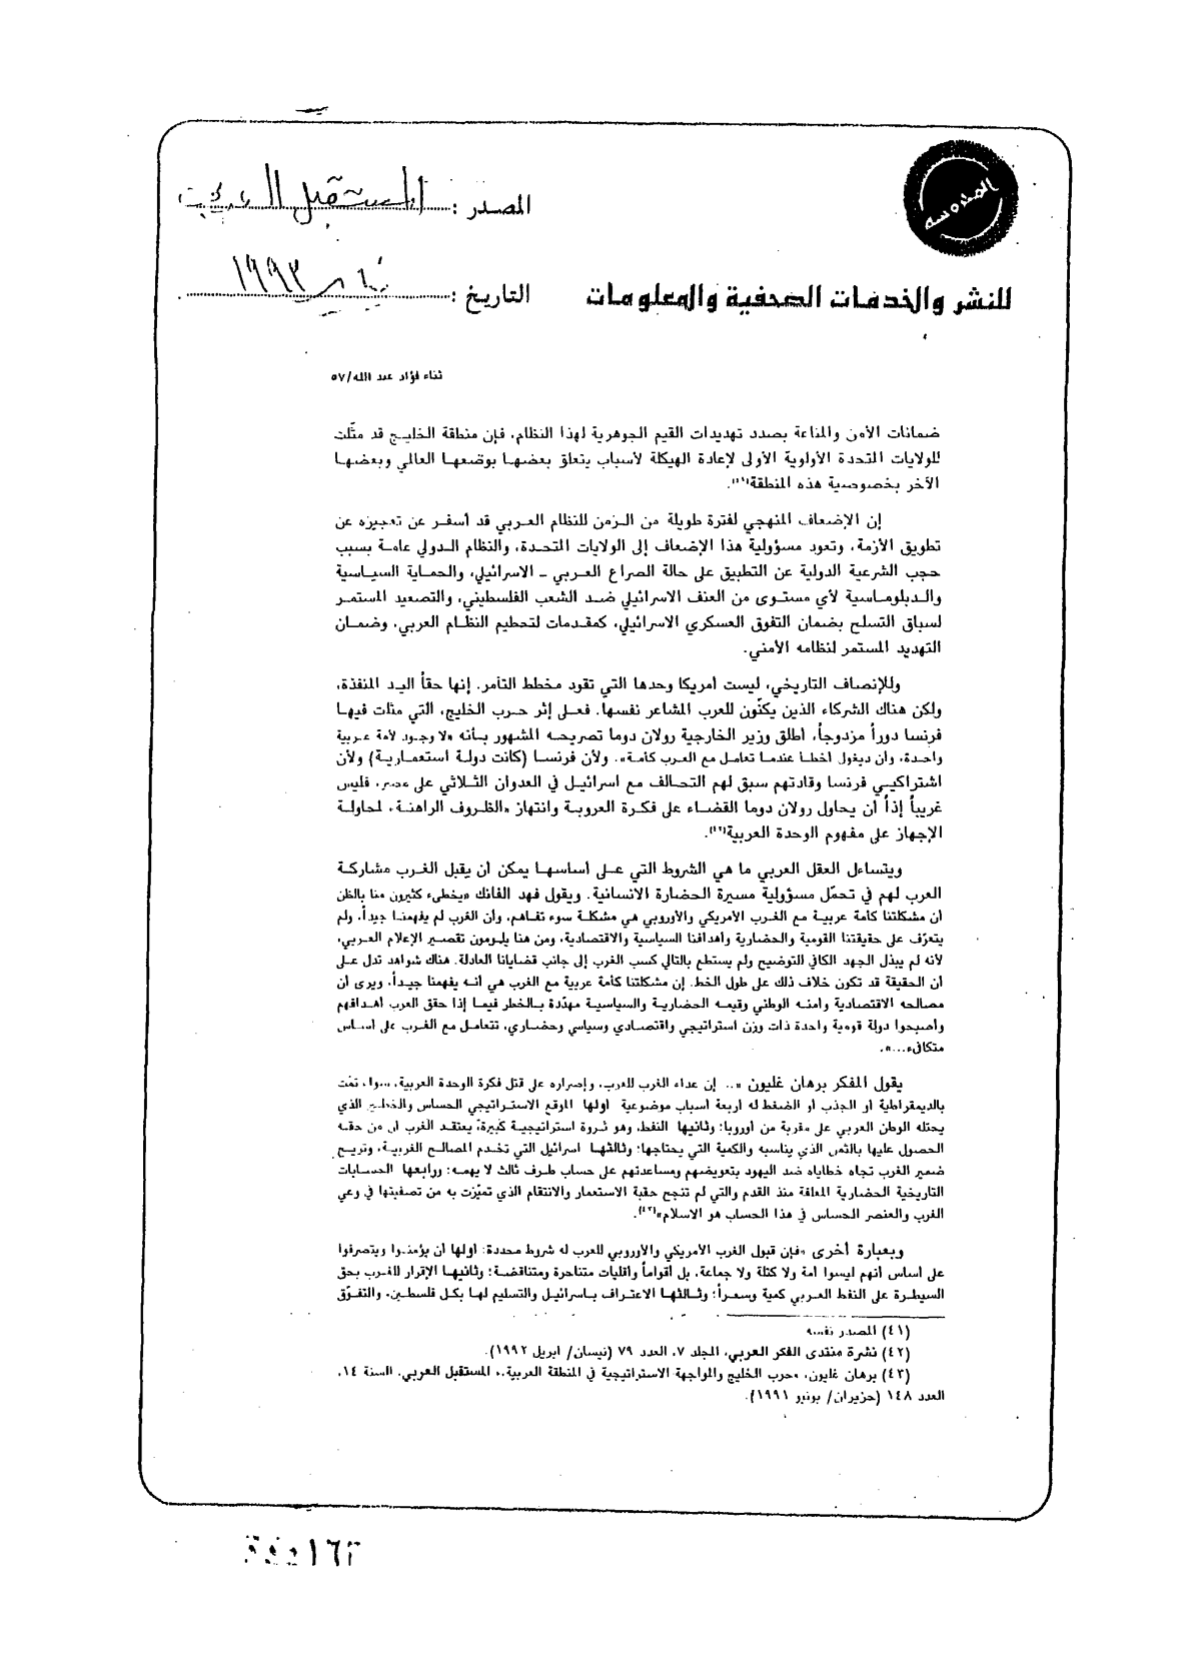 المصدر : المستقبل العربي
التاريخ : ١٩٩٣
للنشر والخدمات الصحفية والمعلومات
ثناء فؤاد عبد الله/٥٧
ضمانات الأمن والمناعة بصدد تهديدات القيم الجوهرية لهذا النظام، فإن منطقة الخليج قد مثّلت
للولايات المتحدة الأولوية الأولى لإعادة الهيكلة لأسباب يتعلق بعضها بوضعها العالمي وبعضها
الآخر بخصوصية هذه المنطقة(٤١).
إن الإضعاف المنهجي لفترة طويلة من الزمن للنظام العربي قد أسفر عن تعجيزه عن
تطويق الأزمة، وتعود مسؤولية هذا الإضعاف إلى الولايات المتحدة، والنظام الدولي عامة بسبب
حجب الشرعية الدولية عن التطبيق على حالة الصراع العربي - الاسرائيلي، والحماية السياسية
والدبلوماسية لأي مستوى من العنف الاسرائيلي ضد الشعب الفلسطيني، والتصعيد المستمر
لسباق التسلح بضمان التفوق العسكري الاسرائيلي، كمقدمات لتحطيم النظام العربي، وضمان
التهديد المستمر لنظامه الأمني.
وللإنصاف التاريخي، ليست أمريكا وحدها التي تقود مخطط التآمر. إنها حقاً اليد المنفذة،
ولكن هناك الشركاء الذين يكنّون للعرب المشاعر نفسها. فعلى إثر حرب الخليج، التي مثلت فيها
فرنسا دوراً مزدوجاً، أطلق وزير الخارجية رولان دوما تصريحه المشهور بأنه «لا وجود لأمة عربية
واحدة، وأن ديغول أخطأ عندما تعامل مع العرب كأمة». ولأن فرنسا (كانت دولة استعمارية) ولأن
اشتراكيي فرنسا وقادتهم سبق لهم التحالف مع اسرائيل في العدوان الثلاثي على مصر، فليس
غريباً إذاً أن يحاول رولان دوما القضاء على فكرة العروبة وانتهاز «الظروف الراهنة» لمحاولة
الإجهاز على مفهوم الوحدة العربية(٤٢).
ويتساءل العقل العربي ما هي الشروط التي على أساسها يمكن أن يقبل الغرب مشاركة
العرب لهم في تحمّل مسؤولية مسيرة الحضارة الانسانية. ويقول فهد الفانك «يخطىء كثيرون منا بالظن
أن مشكلتنا كأمة عربية مع الغرب الأمريكي والأوروبي هي مشكلة سوء تفاهم، وأن الغرب لم يفهمنا جيداً، ولم
يتعرّف على حقيقتنا القومية والحضارية وأهدافنا السياسية والاقتصادية، ومن هنا يلومون تقصير الإعلام العربي،
لأنه لم يبذل الجهد الكافي التوضيح ولم يستطع بالتالي كسب الغرب إلى جانب قضايانا العادلة. هناك شواهد تدل على
أن الحقيقة قد تكون خلاف ذلك على طول الخط. إن مشكلتنا كأمة عربية مع الغرب هي أنه يفهمنا جيداً، ويرى أن
مصالحه الاقتصادية وأمنه الوطني وقيمه الحضارية والسياسية مهدّدة بالخطر فيما إذا حقق العرب أهدافهم
وأصبحوا دولة قومية واحدة ذات وزن استراتيجي واقتصادي وسياسي وحضاري، تتعامل مع الغرب على أساس
متكافىء...».
يقول المفكر برهان غليون «.. إن عداء الغرب للعرب، وإصراره على قتل فكرة الوحدة العربية، سواء تمّت
بالديمقراطية أو الجذب أو الضغط له أربعة أسباب موضوعية أولها الموقع الاستراتيجي الحساس والخطير الذي
يحتله الوطن العربي على مقربة من أوروبا؛ وثانيها النفط، وهو ثروة استراتيجية كبيرة، يعتقد الغرب أن من حقه
الحصول عليها بالثمن الذي يناسبه والكمية التي يحتاجها؛ وثالثها اسرائيل التي تخدم المصالح الغربية، وتريح
ضمير الغرب تجاه خطاياه ضد اليهود بتعويضهم ومساعدتهم على حساب طرف ثالث لا يهمه؛ ورابعها الحسابات
التاريخية الحضارية المعلقة منذ القدم والتي لم تنجح حقبة الاستعمار والانتقام الذي تميّزت به من تصفيتها في وعي
الغرب والعنصر الحساس في هذا الحساب هو الاسلام»(٤٣).
وبعبارة أخرى «فإن قبول الغرب الأمريكي والأوروبي للعرب له شروط محددة: أولها أن يؤمنوا ويتصرفوا
على أساس أنهم ليسوا أمة ولا كتلة ولا جماعة، بل أقواماً وأقليات متناحرة ومتناقضة؛ وثانيها الإقرار للغرب بحق
السيطرة على النفط العربي كمية وسعراً؛ وثالثها الاعتراف باسرائيل والتسليم لها بكل فلسطين، والتفرّق
(٤١) المصدر نفسه
(٤٢) نشرة منتدى الفكر العربي، المجلد ٧، العدد ٧٩ (نيسان/ ابريل ١٩٩٢).
(٤٣) برهان غليون، «حرب الخليج والمواجهة الاستراتيجية في المنطقة العربية،» المستقبل العربي، السنة ١٤،
العدد ١٤٨ (حزيران/ يونيو ١٩٩١).